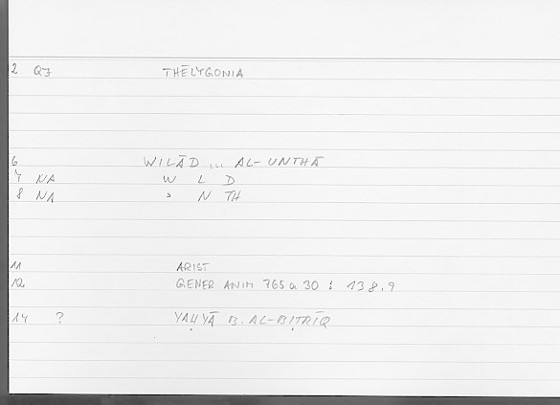 2 QJ THĒLYGONIA
6 WILĀD ... AL-UNTHĀ
7 NA W L D
8 NA ʾ N TH
11 ARIST
12 GENER ANIM 765 a 30 : 138.9
14 ? YAḤYĀ B. AL-BIṬRĪQ